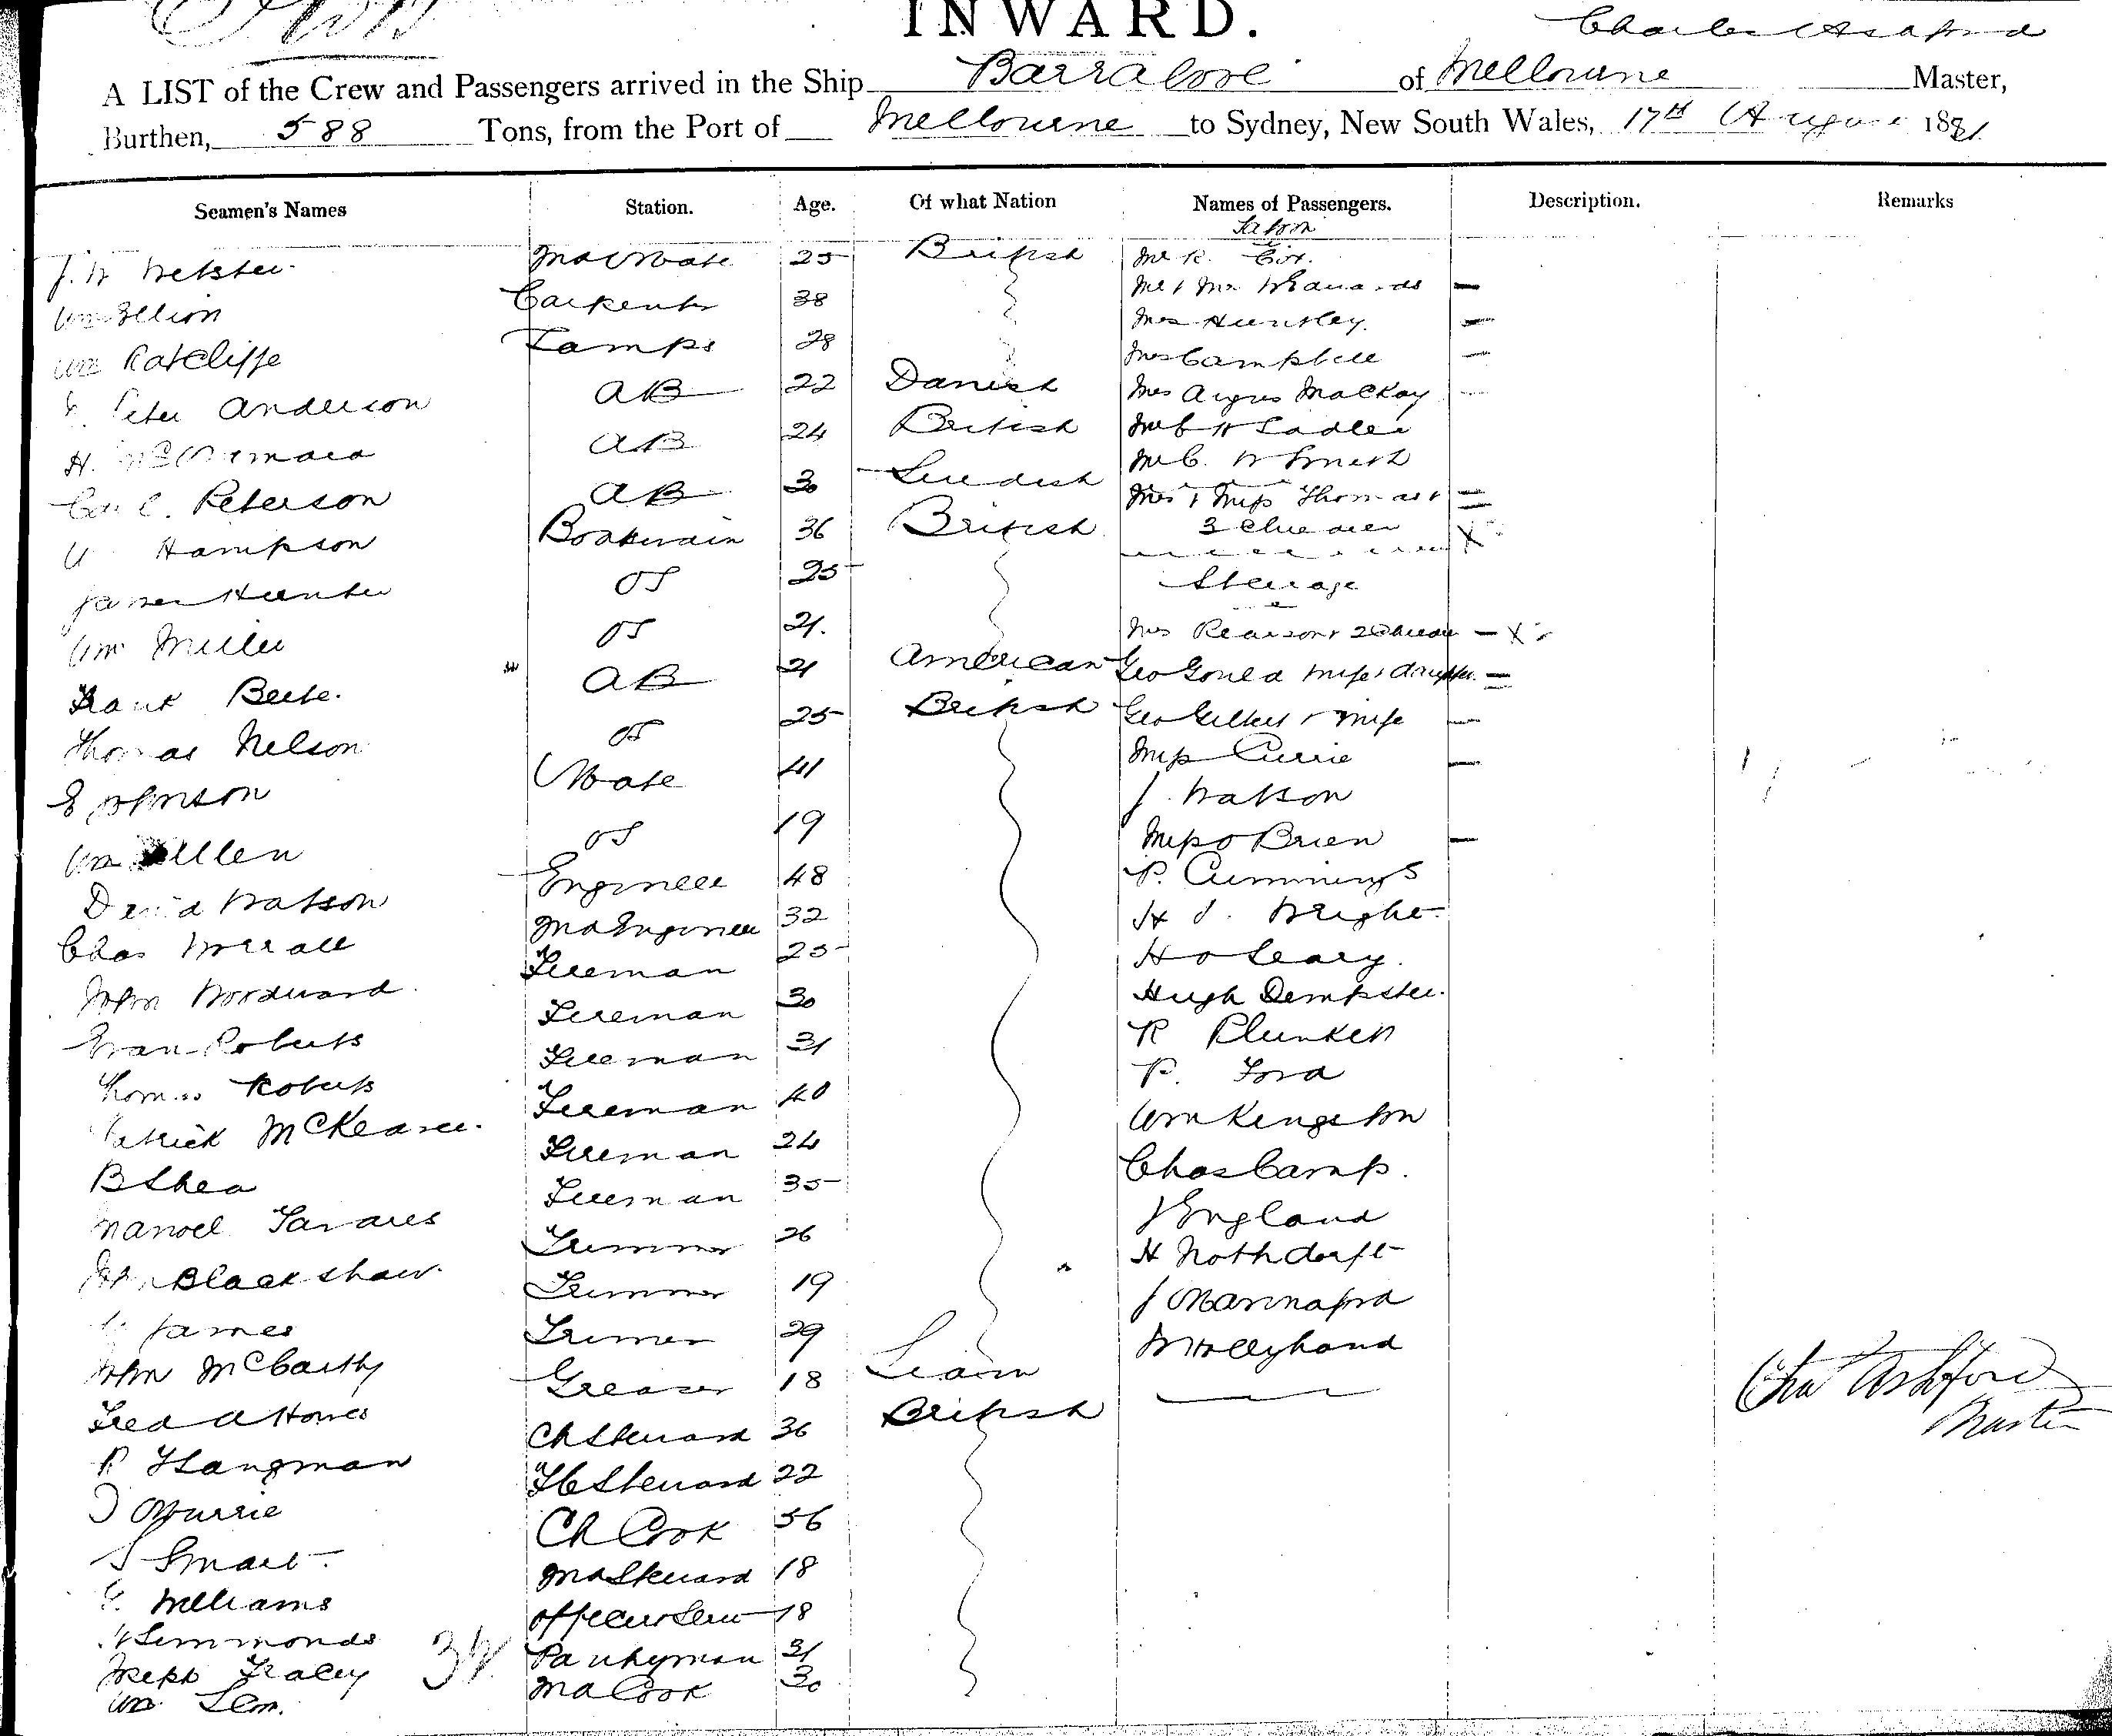 INWARD.
Charles Ashford
A LIST of the Crew and Passengers arrived in the Ship Barrabool of Melbourne Master,
Burthen, 588 Tons, from the Port of Melbourne to Sydney, New South Wales, 17th August 1881
Seamen's Names Station. Age. Of what Nation Names of Passengers. Description. Remarks
Saloon
J. W Webster 2nd Mate 25 British Mr R. Cox.
Wm Carpenter 38 Mr & Mrs Edwards
Wm Ratcliffe Lamps 28 Mrs Huntley.
Mrs Campbell
Peter Anderson AB 22 Danish Mrs Angus MacKay
H. AB 24 British Mr C H Sadler
Mr C. W Smith
Carl C. Peterson AB 30 Swedish Mrs & Miss Thomas &
Hampson Boatswain 36 British 3 Children
James Hunter OS 25 Steerage
Wm Miller OS 21. Mrs Pearson & 2 Children X
Frank Beebe. AB 21 American Geo Gould Wife & daughter
Thomas Nelson OS 25 British Geo Gilbert & Wife
E Johnson Mate 41 Miss Currie
J. Watson
Wm Allen OS 19 Miss O Brien
David Watson Engineer 48 P. Cummings
Chas Worrall 2nd Engineer 32 H J. Wright
John Woodward Fireman 25 H O Leary.
Evan Roberts Fireman 30 Hugh Dempster.
Thomas Roberts Fireman 31 R Plunkett
Patrick McKearee. Fireman 40 P. Ford
B Shea Fireman 24 Wm Kingston
Manoel Tavares Fireman 35 Chas Camp.
John Blackshaw. Trimmer 26 J England
James Trimmer 19 H Nothdorft
John McCarthy Trimer 29 J Marinaford
Fred A Howes Greaser 18 Siam W Hollyhand
P Hangman Ch Steward 36 British
J Murrie F C Steward 22
S Smart. Ch Cook 56
Williams 2nd Steward 18
H Simmonds Officers Serv 18
Joseph Tracey 34 Pantryman 31
Wm 2nd Cook 30
Chas Ashford
Master